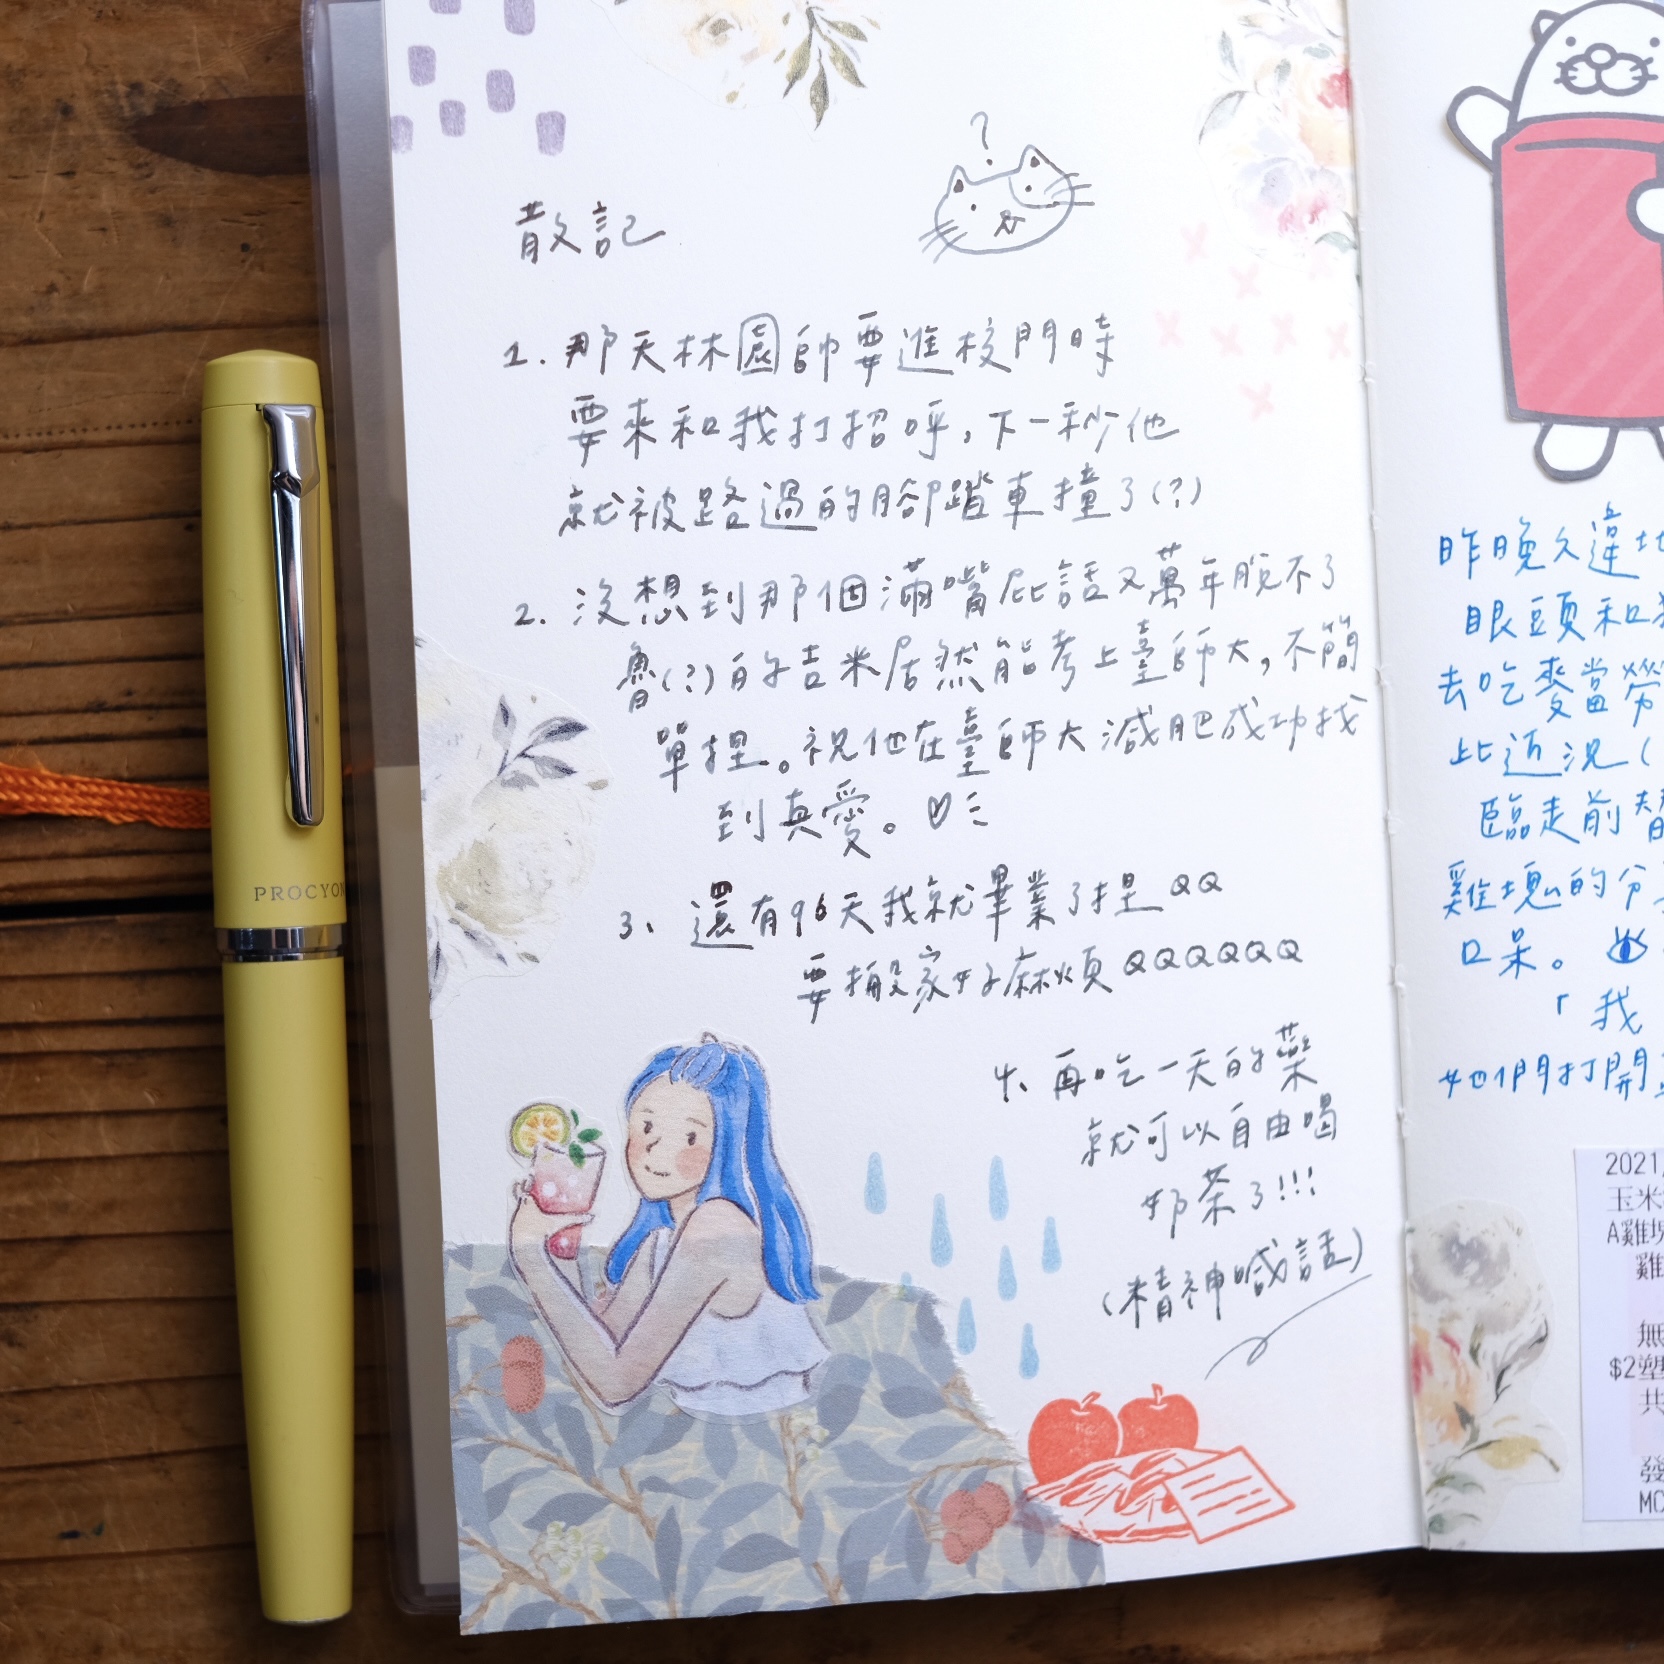 散記
?
1. 那天林園帥要進校門時
要來和我打招呼，下一秒他
就被路過的腳踏車撞了(?)
2. 沒想到那個滿嘴屁話又萬年脫不了
魯(?)的吉米居然能考上臺師大，不簡
單捏。祝他在臺師大減肥成功找
到真愛。♡
3、還有96天我就畢業了捏QQ
要搬家好麻煩QQQQQQ
4、再吃一天的藥
就可以自由喝
奶茶了!!!
(精神喊話)
PROCYON
昨晚久違地
眼頭和
去吃麥當勞
比近況(
臨走前替
雞塊的分
口呆。
「我
她們打開
2021/
玉米
A雞塊
雞
無
$2塑
共
發
MC